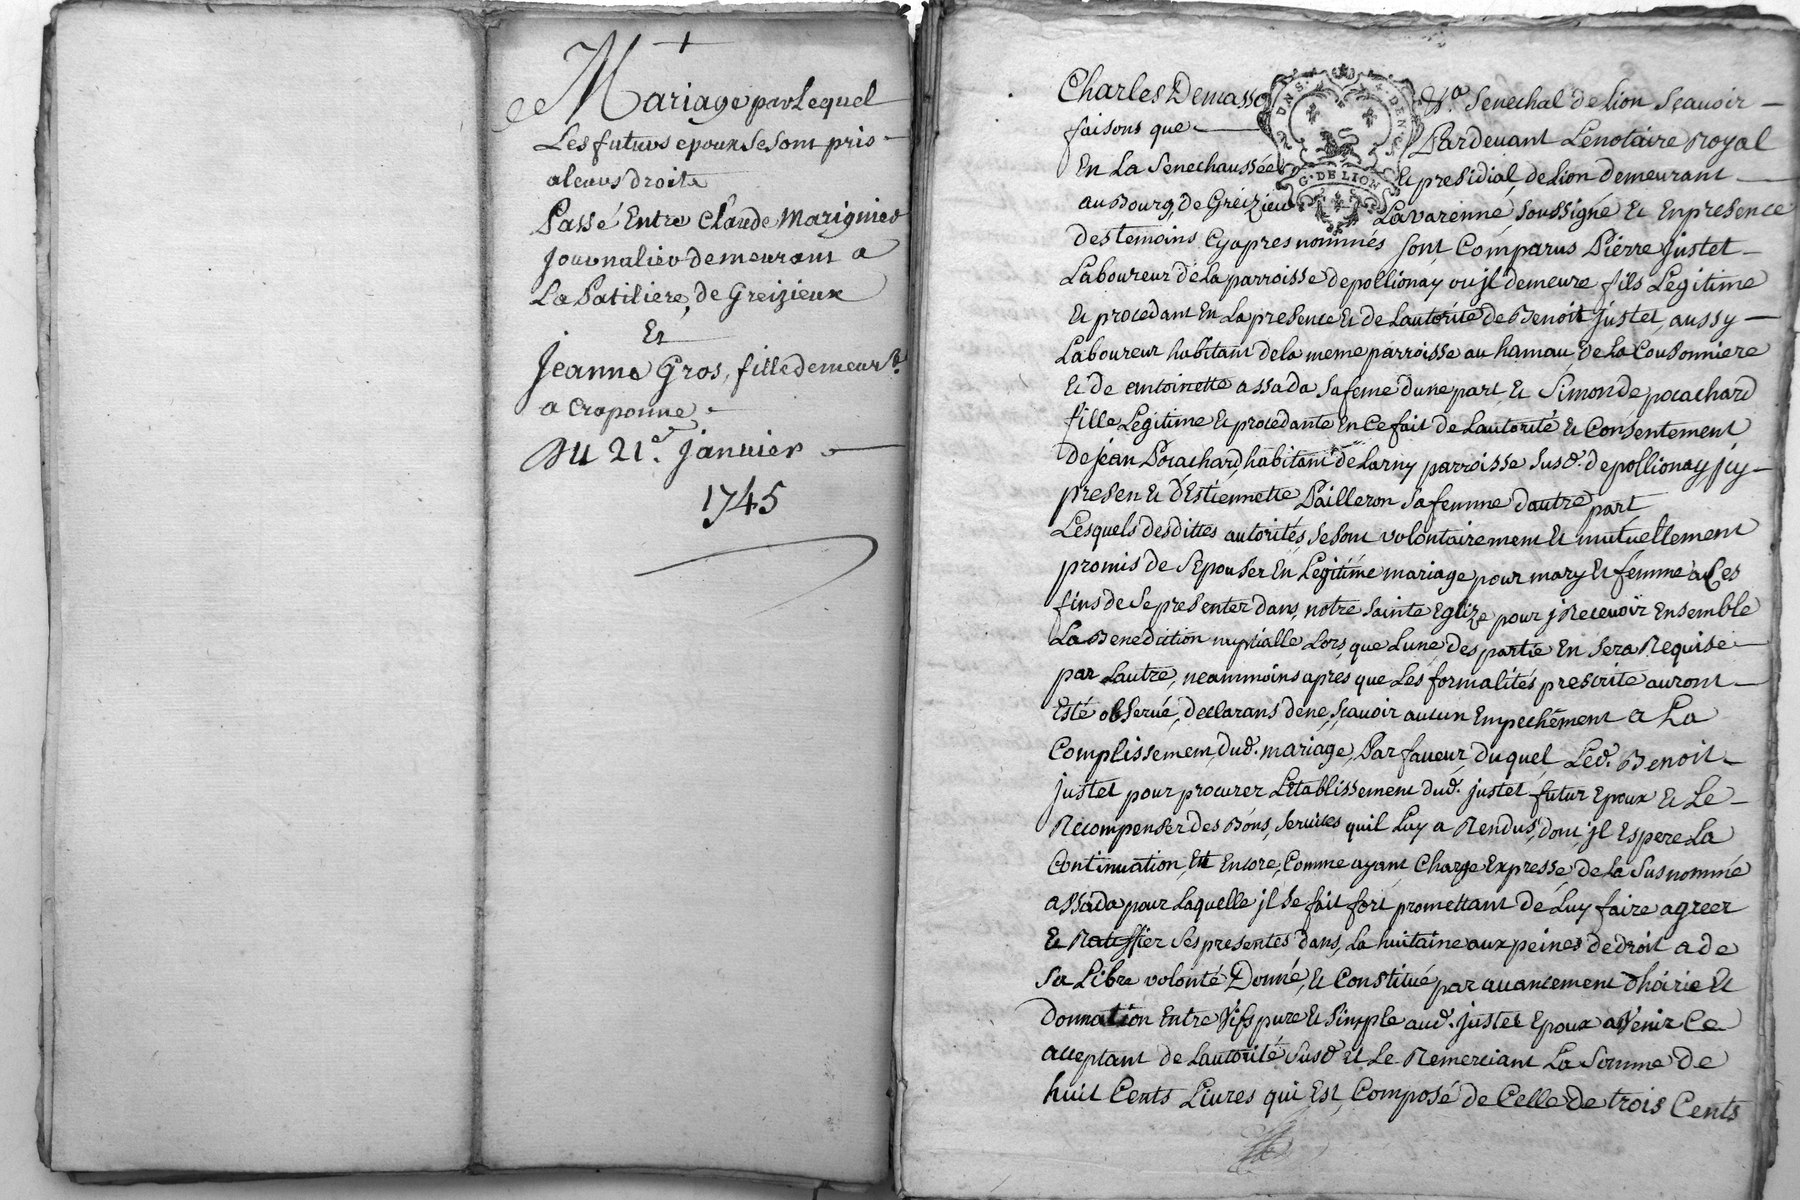 Mariage par Lequel
Les futurs epoux se sont pris
a leurs droits
Passé Entre Claude Marignier
Journalier demeurant a
La Patiliere, de Greizieux
Et
Jeanne Gros, fille demeurte.
a Craponne.
Du 21e. janvier
1745
Charles Demasso Sr. Senechal de lion Sçavoir
faisons que Pardevant Le notaire Royal
En La Senechaussée Et presidial de Lion demeurant
au Bourg de Greizieu Lavarenne soussigné Et En presence
des temoins Cy apres nommés sont Comparus Pierre justet
Laboureur de la parroisse de pollionay ou jl demeure fils Legitime
Et procedant En La presence Et de Lautorité de Benoit justet, aussy
Laboureur habitant de la meme parroisse au hamau de La Cousonniere
Et de antoinette assada sa feme dune part Et Simonde pocachard
fille Legitime Et procedante En Ce fait de Lautorité Et Consentement
de jean Pocachard habitant de Larny parroisse susd. de pollionay jcy
presen Et d'Estiennette Pailleron sa femme dautre part
Lesquels desdittes autorités se sont volontairement Et mutuellement
promis de S'Epouser En Legitime mariage pour mary Et femme a Ces
fins de Se presenter dans notre Sainte Eglize pour j Recevoir Ensemble
La Benediction nuptialle Lors que Lune des partie En sera Requise
par Lautre, neammoins apres que Les formalités prescrite auront
Esté observé, declarans de ne Sçavoir aucun Empechement a La
Complissement dud. mariage, Par faveur duquel Led. Benoit
justet pour procurer L'Etablissement dud. justet futur Epoux Et Le
Recompenser des Bons, Services quil Luy a Rendus, dont jl Espere La
Continuation, Et Encore, Comme ayant Charge Expresse de La susnommé
assada pour Laquelle jl se fait fort promettant de Luy faire agreer
Et Ratiffier Ses presentes dans La huitaine aux peines de droit a de
sa Libre volonté Donné, Et Constitué par avancement dhoirie Et
donnation Entre Vifs pure Et simple aud. justet Epoux a Venir Ce
acceptant de Lautorité susd. Et Le Remerciant La Somme de
huit Cents Livres qui Est Composé de Celle de trois Cents
G. DE LION